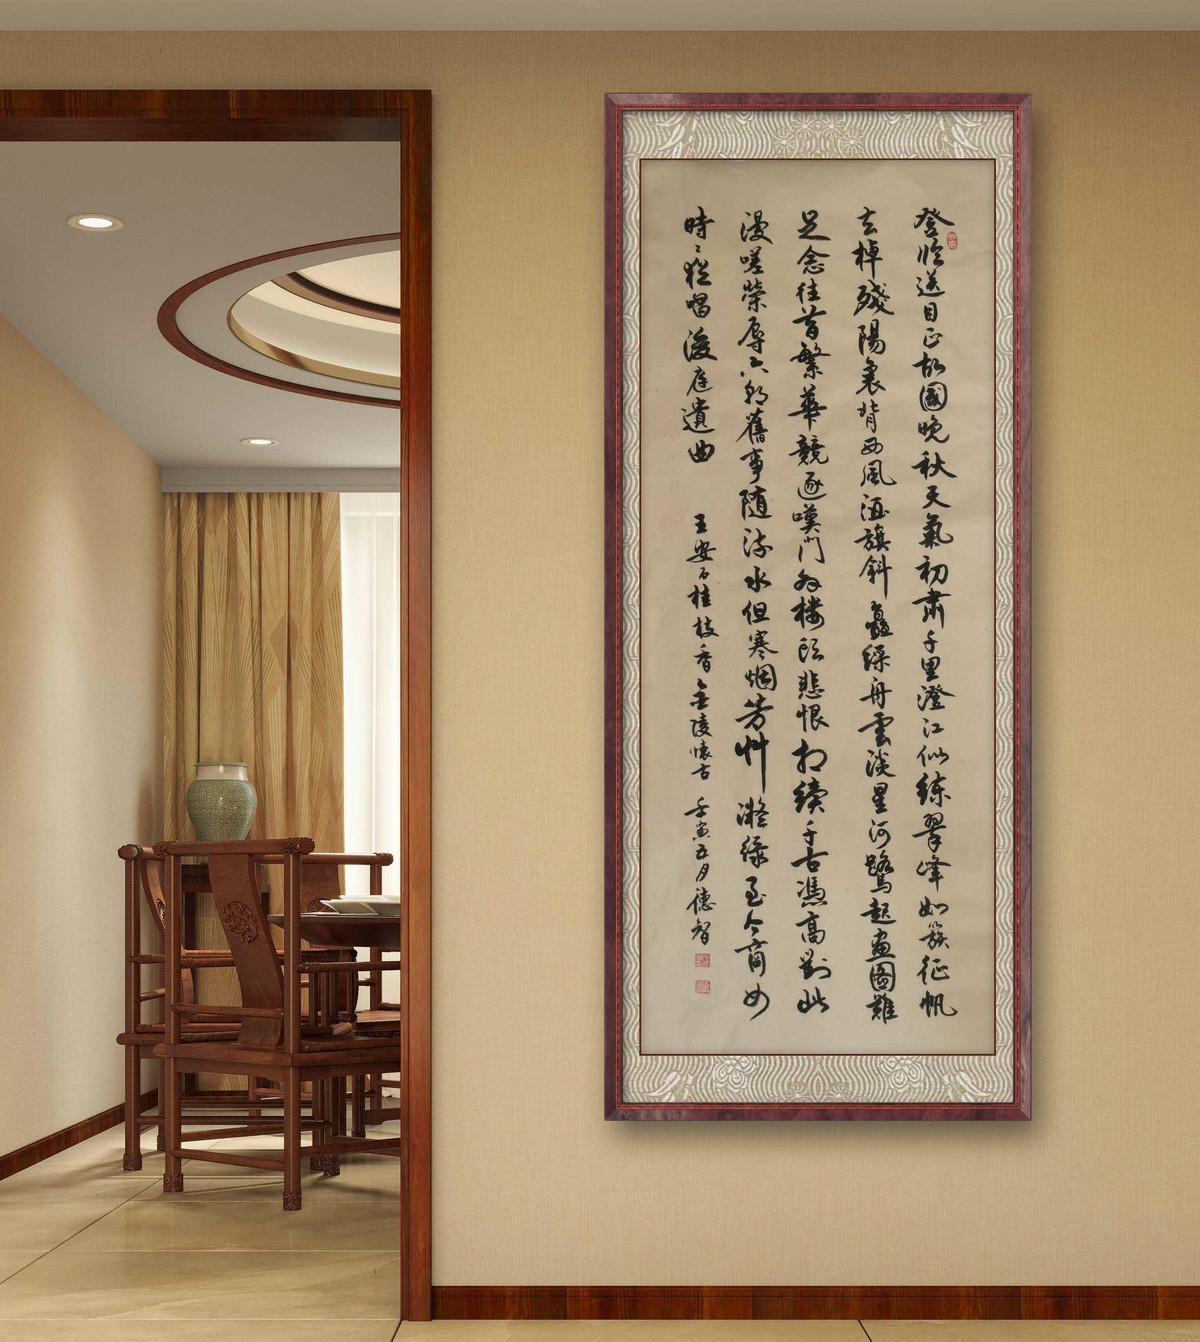 登臨送目正故國晚秋天氣初肅千里澄江似練翠峰如簇征帆
去棹殘陽裏背西風酒旗斜矗綵舟雲淡星河鷺起畫圖難
足念往昔繁華競逐嘆門外楼頭悲恨相續千古憑高對此
漫嗟榮辱六朝舊事随流水但寒烟芳艸凝綠至今商女
時〻猶唱後庭遺曲 王安石桂枝香金陵懷古 壬寅五月德智